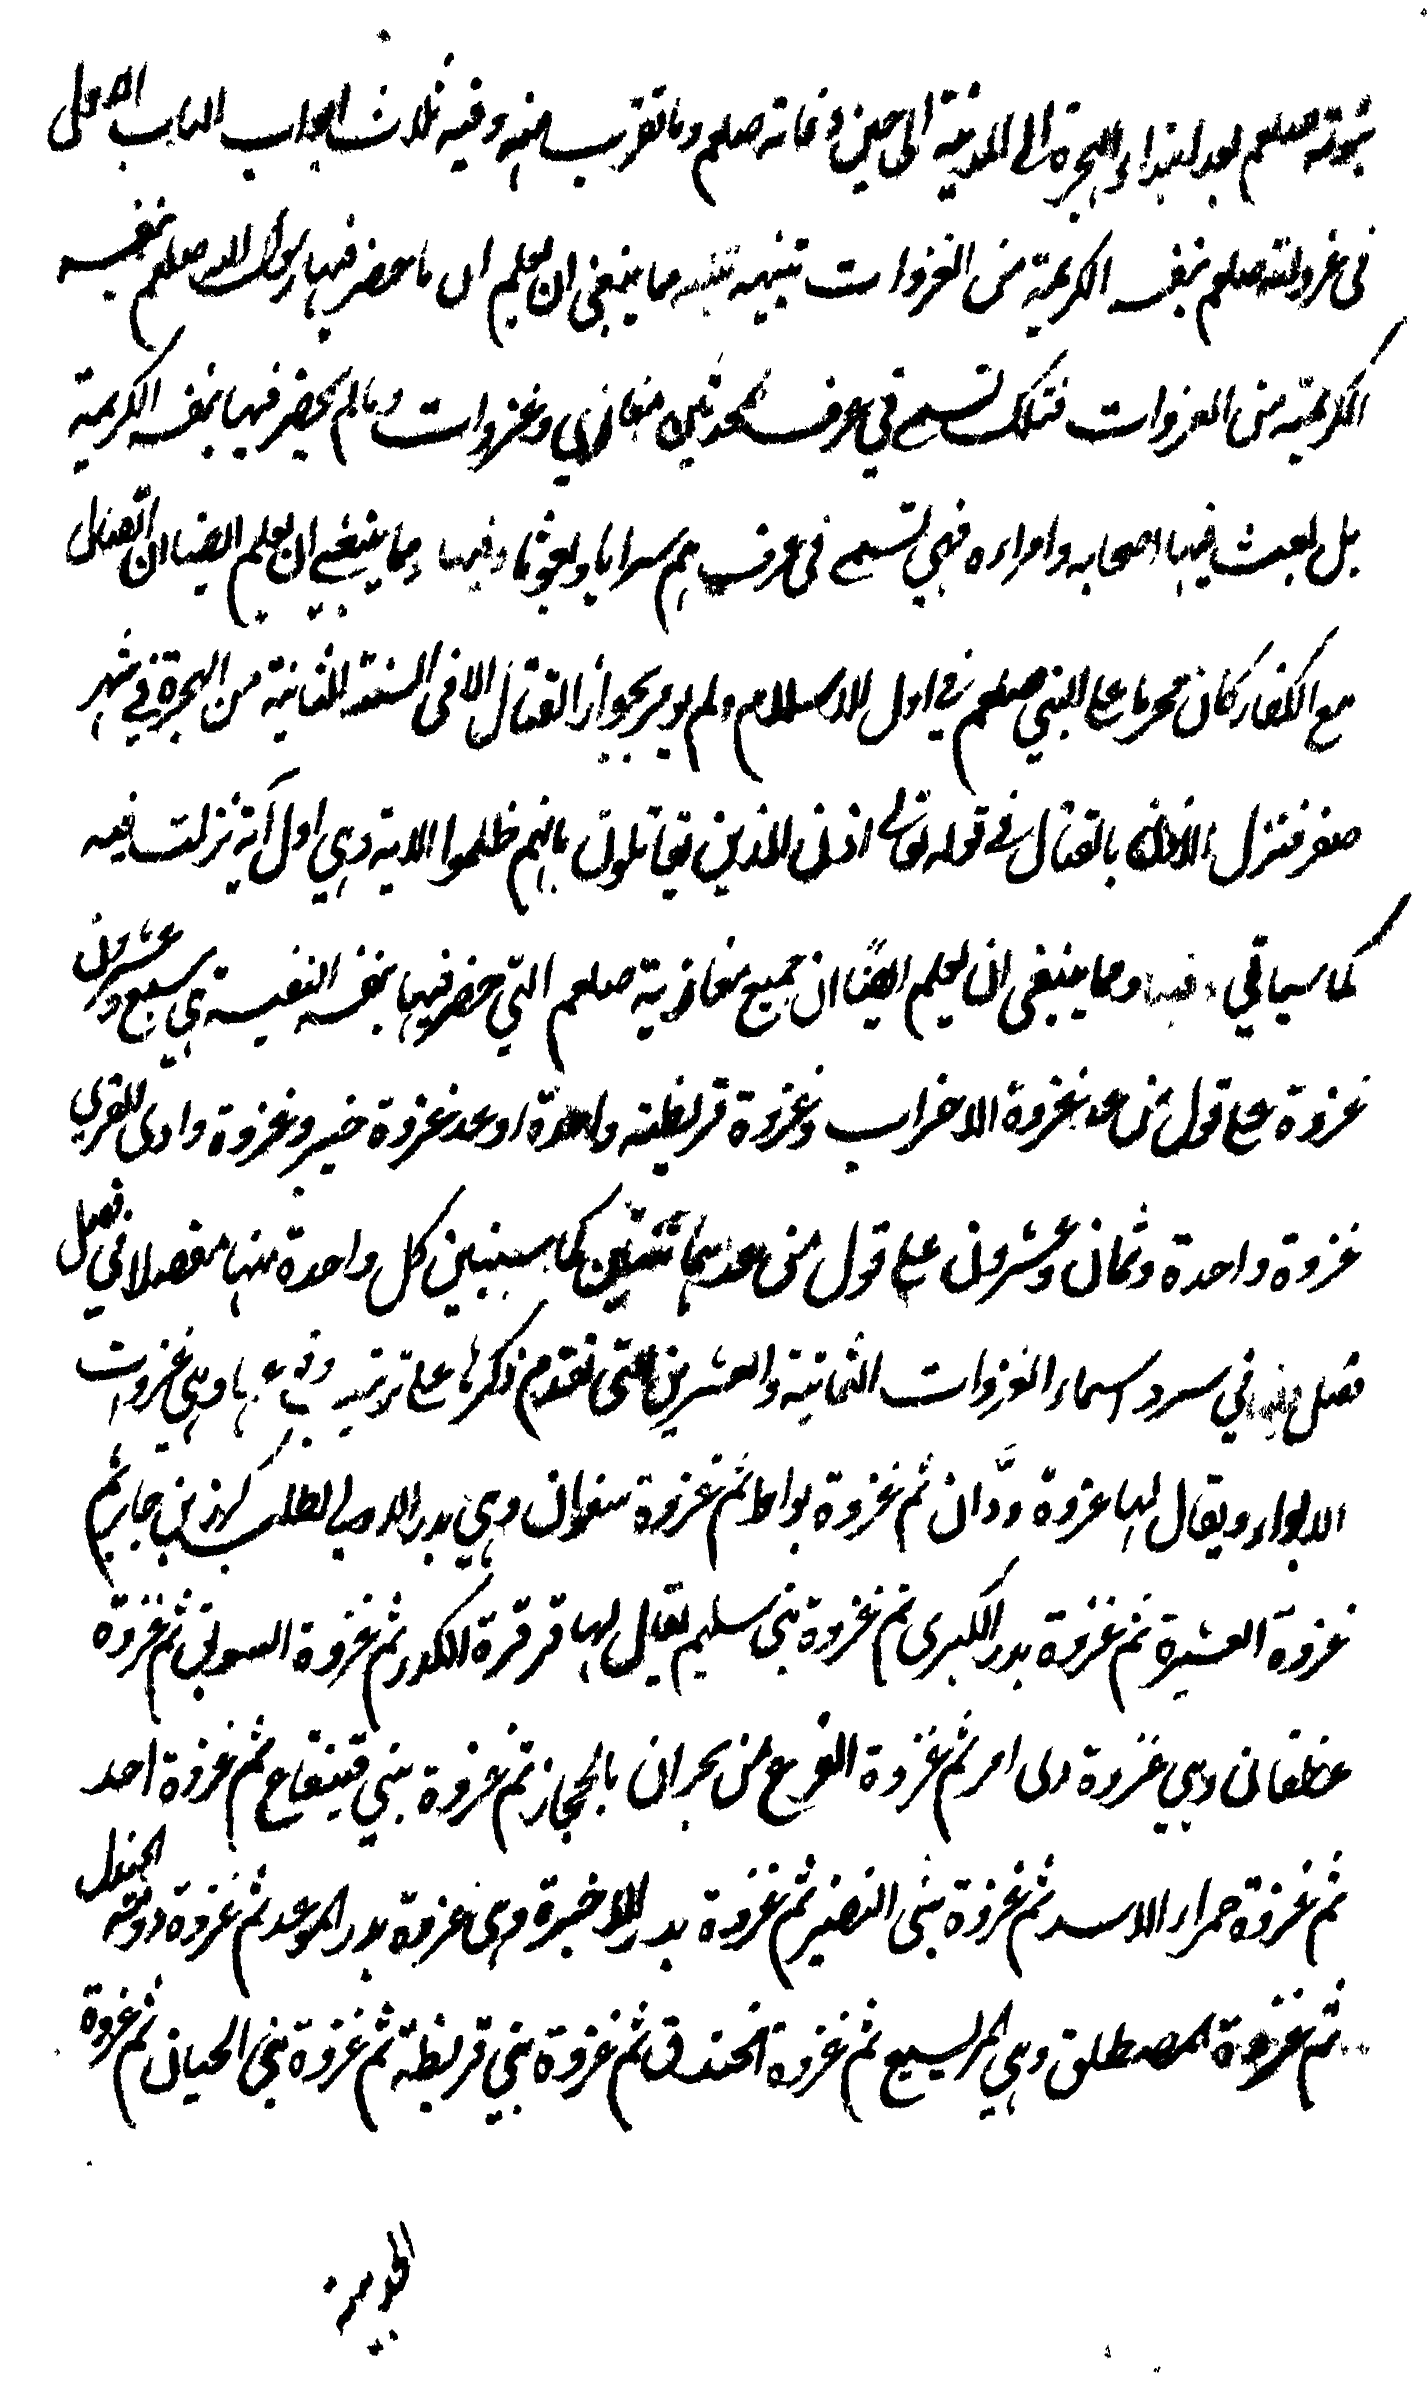 نبوته صلعم بعد ابتداء الهجرة الى المدينة الى حين وفاته صلعم وما تقرب منه وفيه ثلاث ابواب الباب الاول
فى غزواته صلعم بنفسه الكريمة من الغزوات تنبيه تنبيه مما ينبغى ان يعلم ان ما حضر فيها رسول الله صلعم بنفسه
الكريمة من الغزوات فتلك تسمى في عرف المحدثين مغازي وغزوات وما لم يحضر فيها بنفسه الكريمة
بل بعث فيها اصحابه وامراءه فهي تسمى فى عرفهم سرايا وبعوثا ومما ينبغي ان يعلم ايضا ان القتال
مع الكفار كان محرما على النبي صلعم في اول الاسلام ولم يومر بجواز القتال الا فى السنة الثانية من الهجرة في شهر
صفر فنزل الاذن بالقتال في قوله تعالى اذن للذين يقاتلون بانهم ظلموا الاية وهي اول آية نزلت فيه
كما سياتي ومما ينبغى ان يعلم ايضًا ان جميع مغازيه صلعم التي حضر فيها بنفسه النفيسة هي سبع وعشرون
غزوة على قول من عد غزوة الاحزاب وغزوة قريظة واحدة او عد غزوة خيبر وغزوة وادى القرى
غزوة واحدة وثمان وعشرون على قول من عدهما ثنتين كما سنبين كل واحدة منها مفصلا في فصل
فصل في سرد اسماء الغزوات الثمانية والعشرين التى تقدم ذكرها على ترتيب وهي غزوات
الابواء ويقال لها غزوة ودَّان ثم غزوة بواط ثم غزوة سفوان وهي بدر الاولى لطلب كرز بن جابر ثم
غزوة العشيرة ثم غزوة بدر الكبرى ثم غزوة بنى سليم يقال لها قرقرة الكدر ثم غزوة السويق ثم غزوة
غطفان وهي غزوة ذى امر ثم غزوة الفرع من بحران بالحجاز ثم غزوة بني قينقاع ثم غزوة احد
ثم غزوة حمراء الاسد ثم غزوة بنى النضير ثم غزوة بدر الاخيرة وهى غزوة بدر الموعد ثم غزوة دومة الجندل
ثم غزوة المصطلق وهي المريسيع ثم غزوة الخندق ثم غزوة بني قريظة ثم غزوة بنى الحيان ثم غزوة